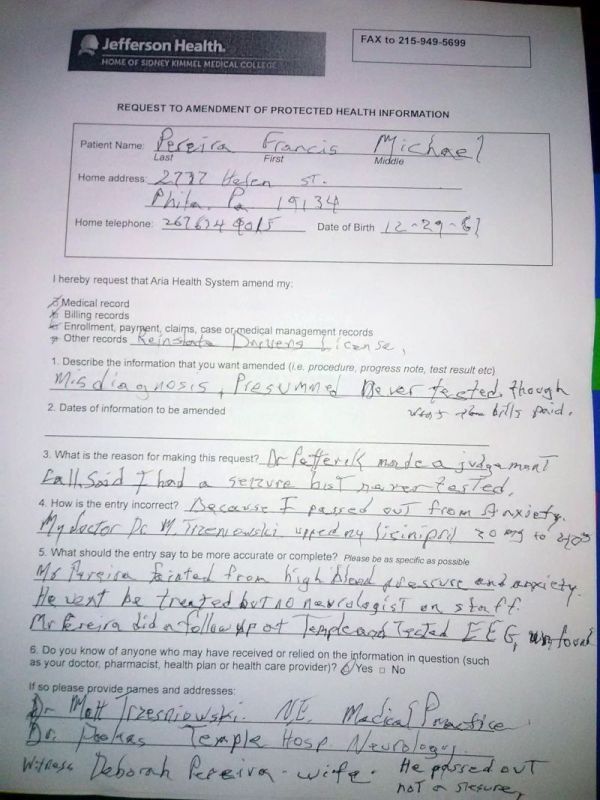 Jefferson Health.
HOME OF SIDNEY KIMMEL MEDICAL COLLEGE
FAX to 215-949-5699
REQUEST TO AMENDMENT OF PROTECTED HEALTH INFORMATION
Patient Name: Pereira Francis Michael
Last First Middle
Home address: 2777 Helen St.
Phila. Pa 19134
Home telephone: 267634 9015 Date of Birth 12-29-61
I hereby request that Aria Health System amend my:
Medical record
Billing records
Enrollment, payment, claims, case or medical management records
Other records Reinstate Drivers License,
1. Describe the information that you want amended (i.e. procedure, progress note, test result etc)
Misdiagnosis, Presummed Never tested, though
bills paid.
2. Dates of information to be amended
3. What is the reason for making this request? Dr Petterik made a judgemant
Call. Said I had a seizure but never tested.
4. How is the entry incorrect? Because I passed out from Anxiety.
My doctor Dr M. Trzeniowski upped my lisinipril 20 mg to
5. What should the entry say to be more accurate or complete? Please be as specific as possible
Mr Pereira fainted from high blood pressure and anxiety.
He went be treated but no neurologist on staff.
Mr Pereira did a follow up at Temple and Tested EEG, unfound
6. Do you know of anyone who may have received or relied on the information in question (such
as your doctor, pharmacist, health plan or health care provider)? Yes No
If so please provide names and addresses:
Dr Matt Trzesniowski. N.E. Medical Practice
Dr. Temple Hosp Neurology.
Witness Deborah Pereira - wife. He passed out
not a siesure,